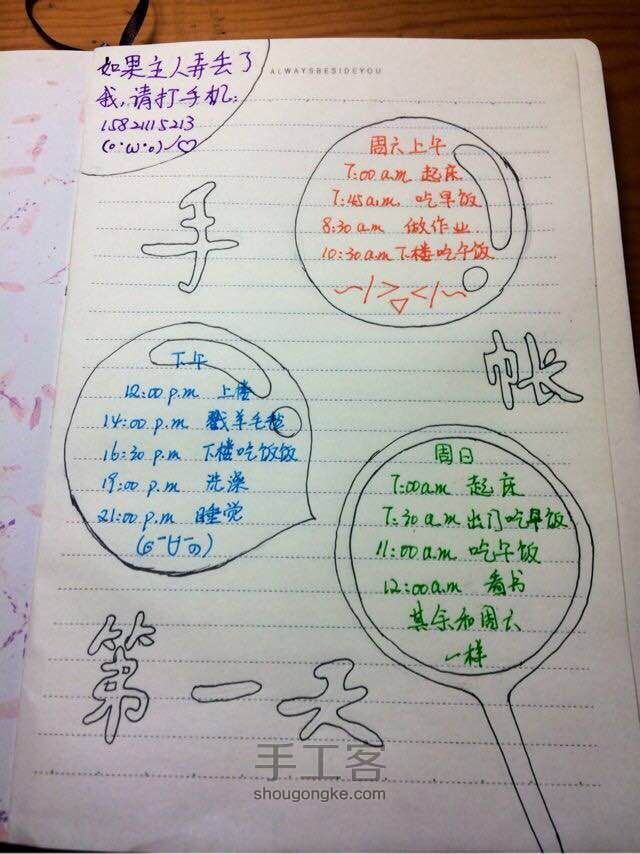 如果主人弄丢了
我,请打手机:
15821115213
(o·ω·o)ノ♡
ALWAYSBESIDEYOU
周六上午
7:00 a.m 起床
7:45 a.m. 吃早饭
8:30 a.m 做作业
10:30 a.m 下楼吃午饭
手
帐
下午
12:00 p.m 上楼
14:00 p.m 戳羊毛毡
16:30 p.m 下楼吃饭饭
19:00 p.m 洗澡
21:00 p.m 睡觉
周日
7:00 a.m 起床
7:30 a.m 出门吃早饭
11:00 a.m 吃午饭
12:00 a.m 看书
其余和周六
一样
第一天
手工客
shougongke.com